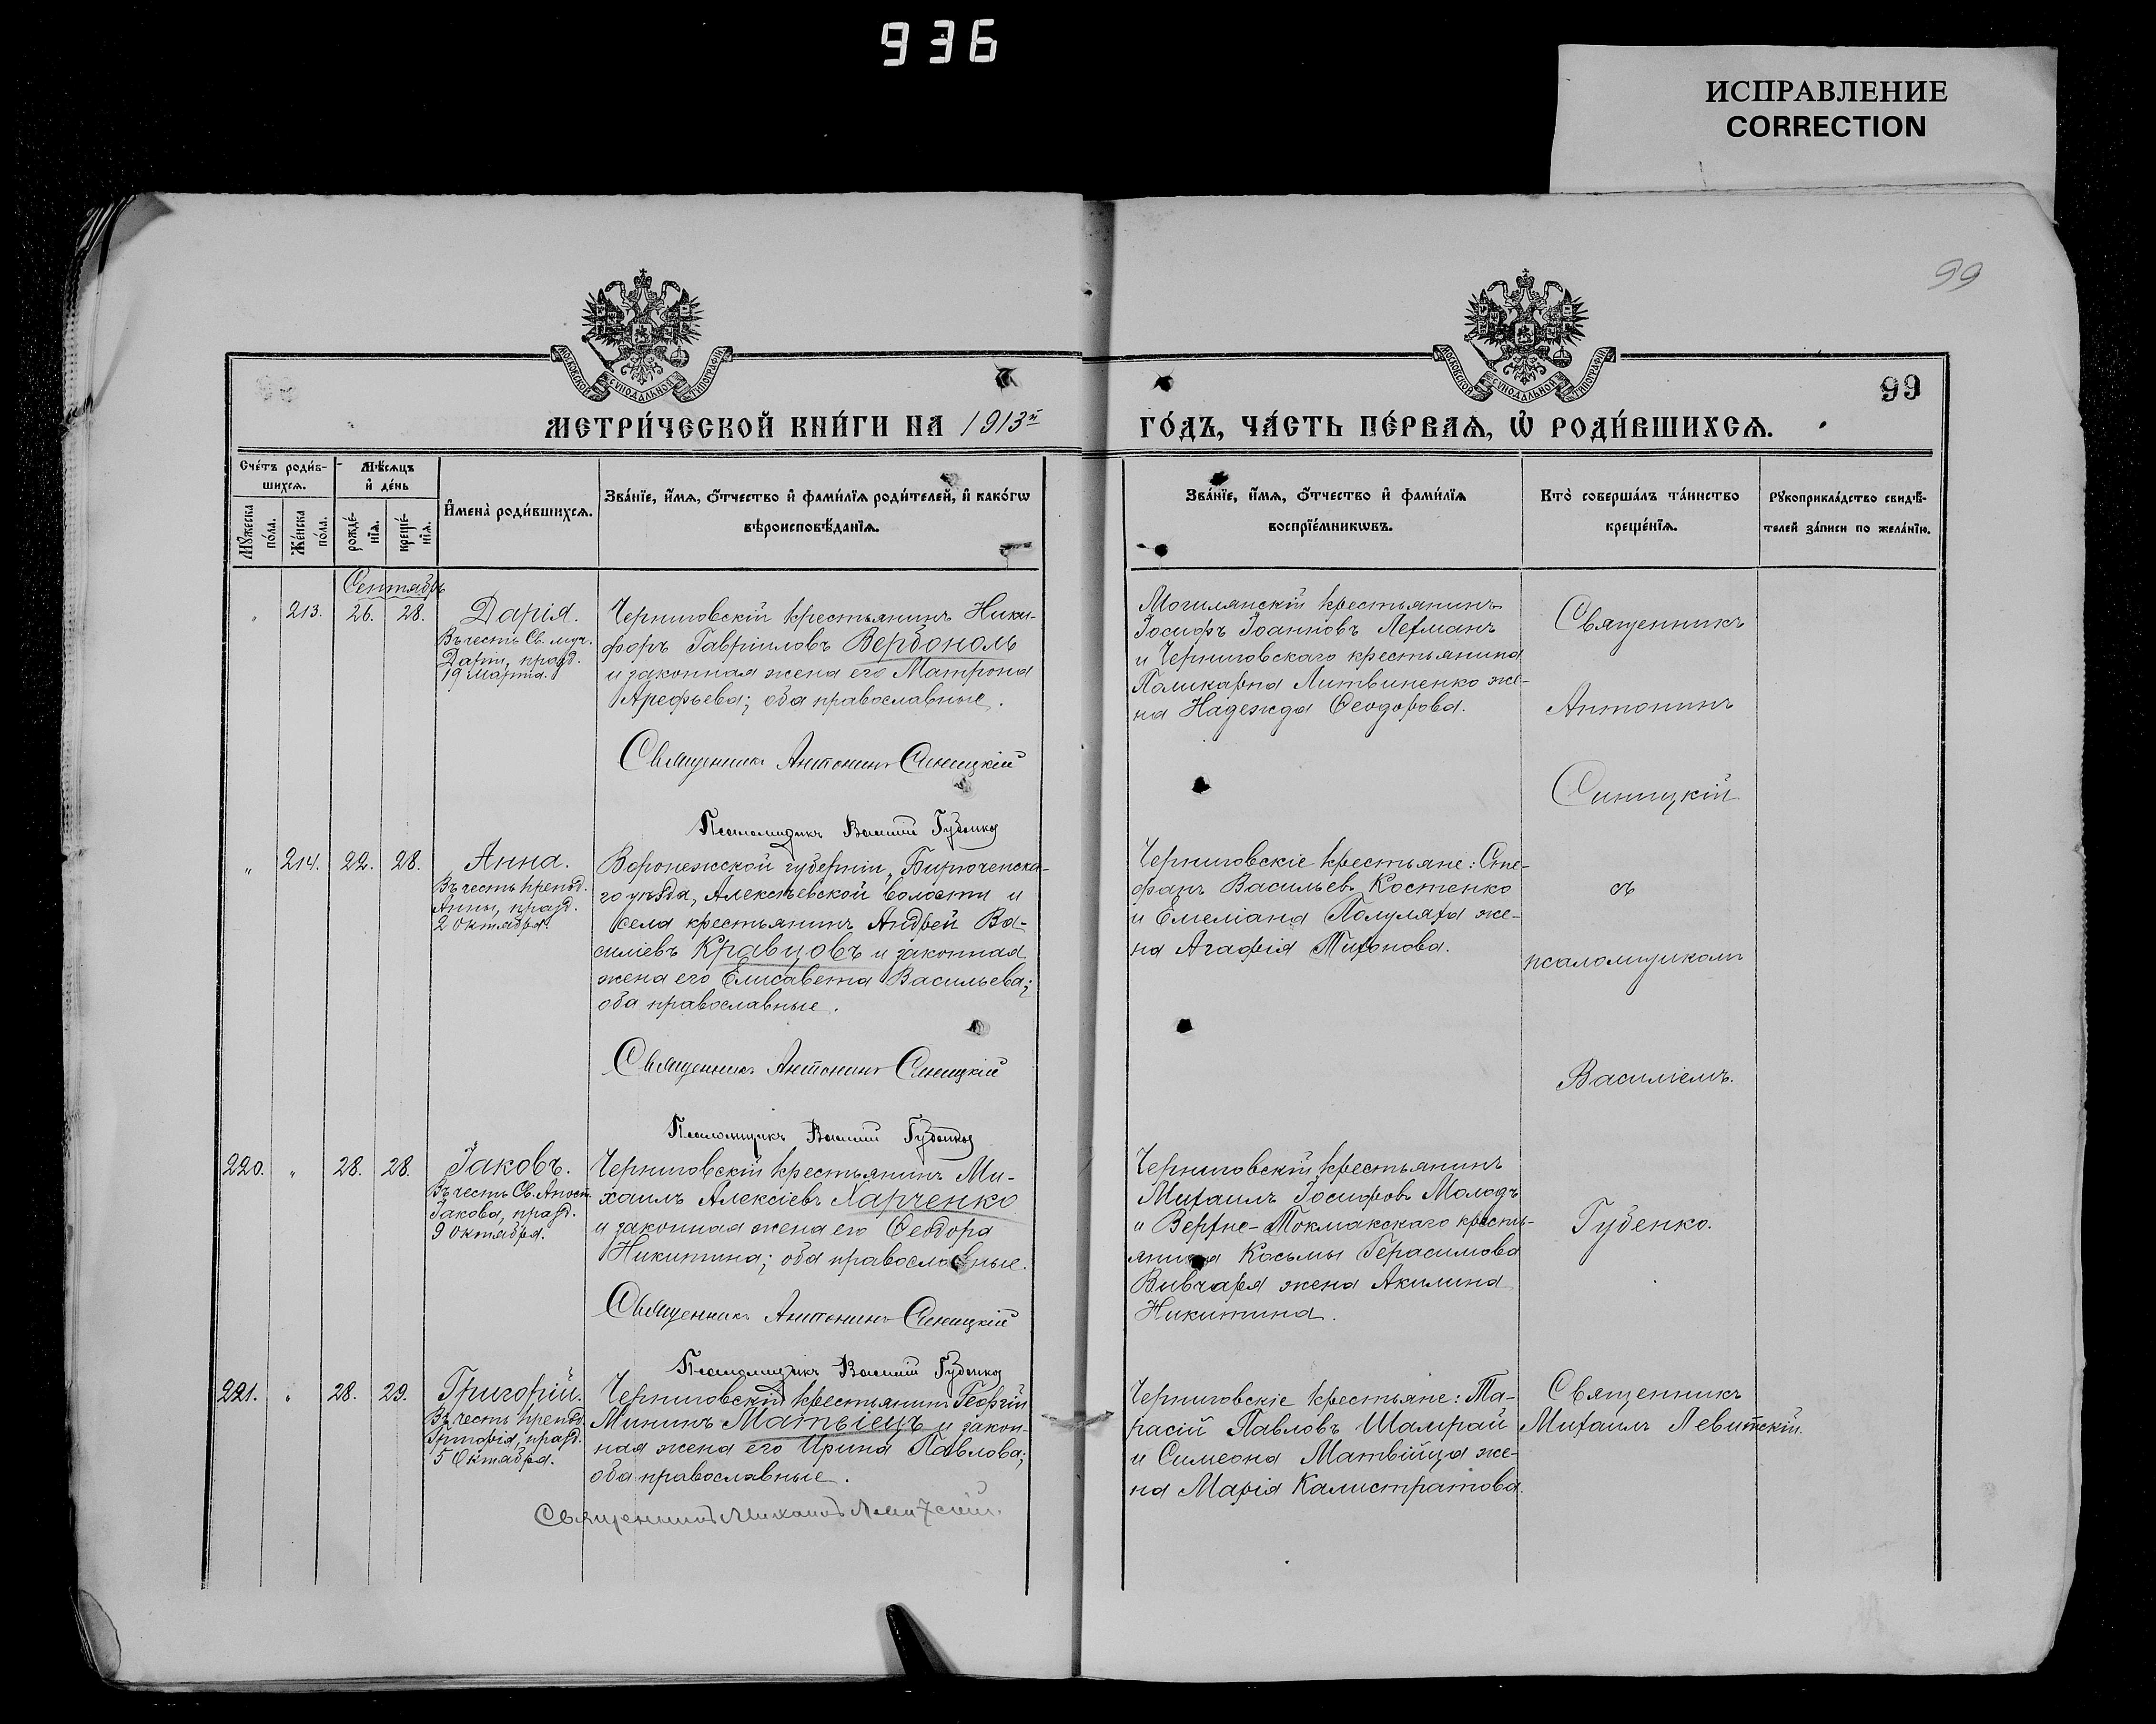 936
ИСПРАВЛЕНИЕ
CORRECTION
99
99
МОСКОВСКОЙ СѴНОДАЛЬНОЙ ТИПОГРАФІИ
МОСКОВСКОЙ СѴНОДАЛЬНОЙ ТИПОГРАФІИ
МЕТРИ́ЧЕСКОЙ КНИ́ГИ НА 1913й
ГО́ДЪ, ЧА́СТЬ ПЕ́РВАѦ, Ѡ҆ РОДИ́ВШИХСѦ.
Сче́тъ роди́в-
шихсѧ.
Мѣ́сѧцъ
и҆ де́нь
Мꙋ́жеска
по́ла.
Же́нска
по́ла.
рожде́-
нїѧ.
креще́-
нїѧ.
И҆мена̀ роди́вшихсѧ.
Зва́нїе, и҆́мѧ, ѻ҆́тчество и҆ фами́лїѧ роди́телей, и҆ како́гѡ
вѣроисповѣ́данїѧ.
Зва́нїе, и҆́мѧ, ѻ҆́тчество и҆ фами́лїѧ
воспрїе́мникѡвъ.
Кто̀ соверша́лъ та́инство
креще́нїѧ.
Рꙋкоприкла́дство свидѣ́-
телей за́писи по жела́нїю.
Сентябрь
" 213. 26. 28. Дарія.
Въ честь Св. муч.
Даріи, празд.
19 Марта.
Черниговскій крестьянинъ Ники-
форъ Гавріиловъ Вербоноль
и законная жена его Матрона
Арефьева; оба православные.
Священникъ Антонинъ Синицкій
Псаломщикъ Василій Губенко
Могилянскій крестьянинъ
Іосифъ Іоанновъ Лехманъ
и Черниговскаго крестьянина
Поликарпа Литвиненко же-
на Надежда Ѳеодорова.
Священникъ
Антонинъ
Синицкій
съ
псаломщикомъ
Василіемъ.
Губенко.
" 214. 22. 28. Анна.
Въ честь препод.
Анны, празд.
2 Октября.
Воронежской губерніи, Бирюченска-
го уѣзда, Алексѣевской волости и
села крестьянинъ Андрей Ва-
силіевъ Кравцовъ и законная
жена его Елисавета Васильева;
оба православные.
Священникъ Антонинъ Синицкій
Псаломщикъ Василій Губенко
Черниговскіе крестьяне: Сте-
фанъ Васильевъ Костенко
и Емеліана Полуляха же-
на Агафія Тихонова.
220. " 28. 28. Іаковъ.
Въ честь Св. Апост.
Іакова, празд.
9 Октября.
Черниговскій крестьянинъ Ми-
хаилъ Алексіевъ Харченко
и законная жена его Ѳеодора
Никитина; оба православные.
Священникъ Антонинъ Синицкій
Псаломщикъ Василій Губенко
Черниговскій крестьянинъ
Михаилъ Іосифовъ Молодъ
и Верхне-Токмакскаго кресть-
янина Косьмы Герасимова
Вивчаря жена Акилина
Никитина.
221. " 28. 29. Григорій.
Въ честь препод.
Григорія, празд.
5 Октября.
Черниговскій крестьянинъ Георгій
Мининъ Матвіецъ и закон-
ная жена его Ирина Павлова;
оба православные.
Священникъ Михаилъ Левитскій.
Черниговскіе крестьяне: Та-
расій Павловъ Шамрай
и Симеона Матвійца же-
на Марія Калистратова.
Священникъ
Михаилъ Левитскій.